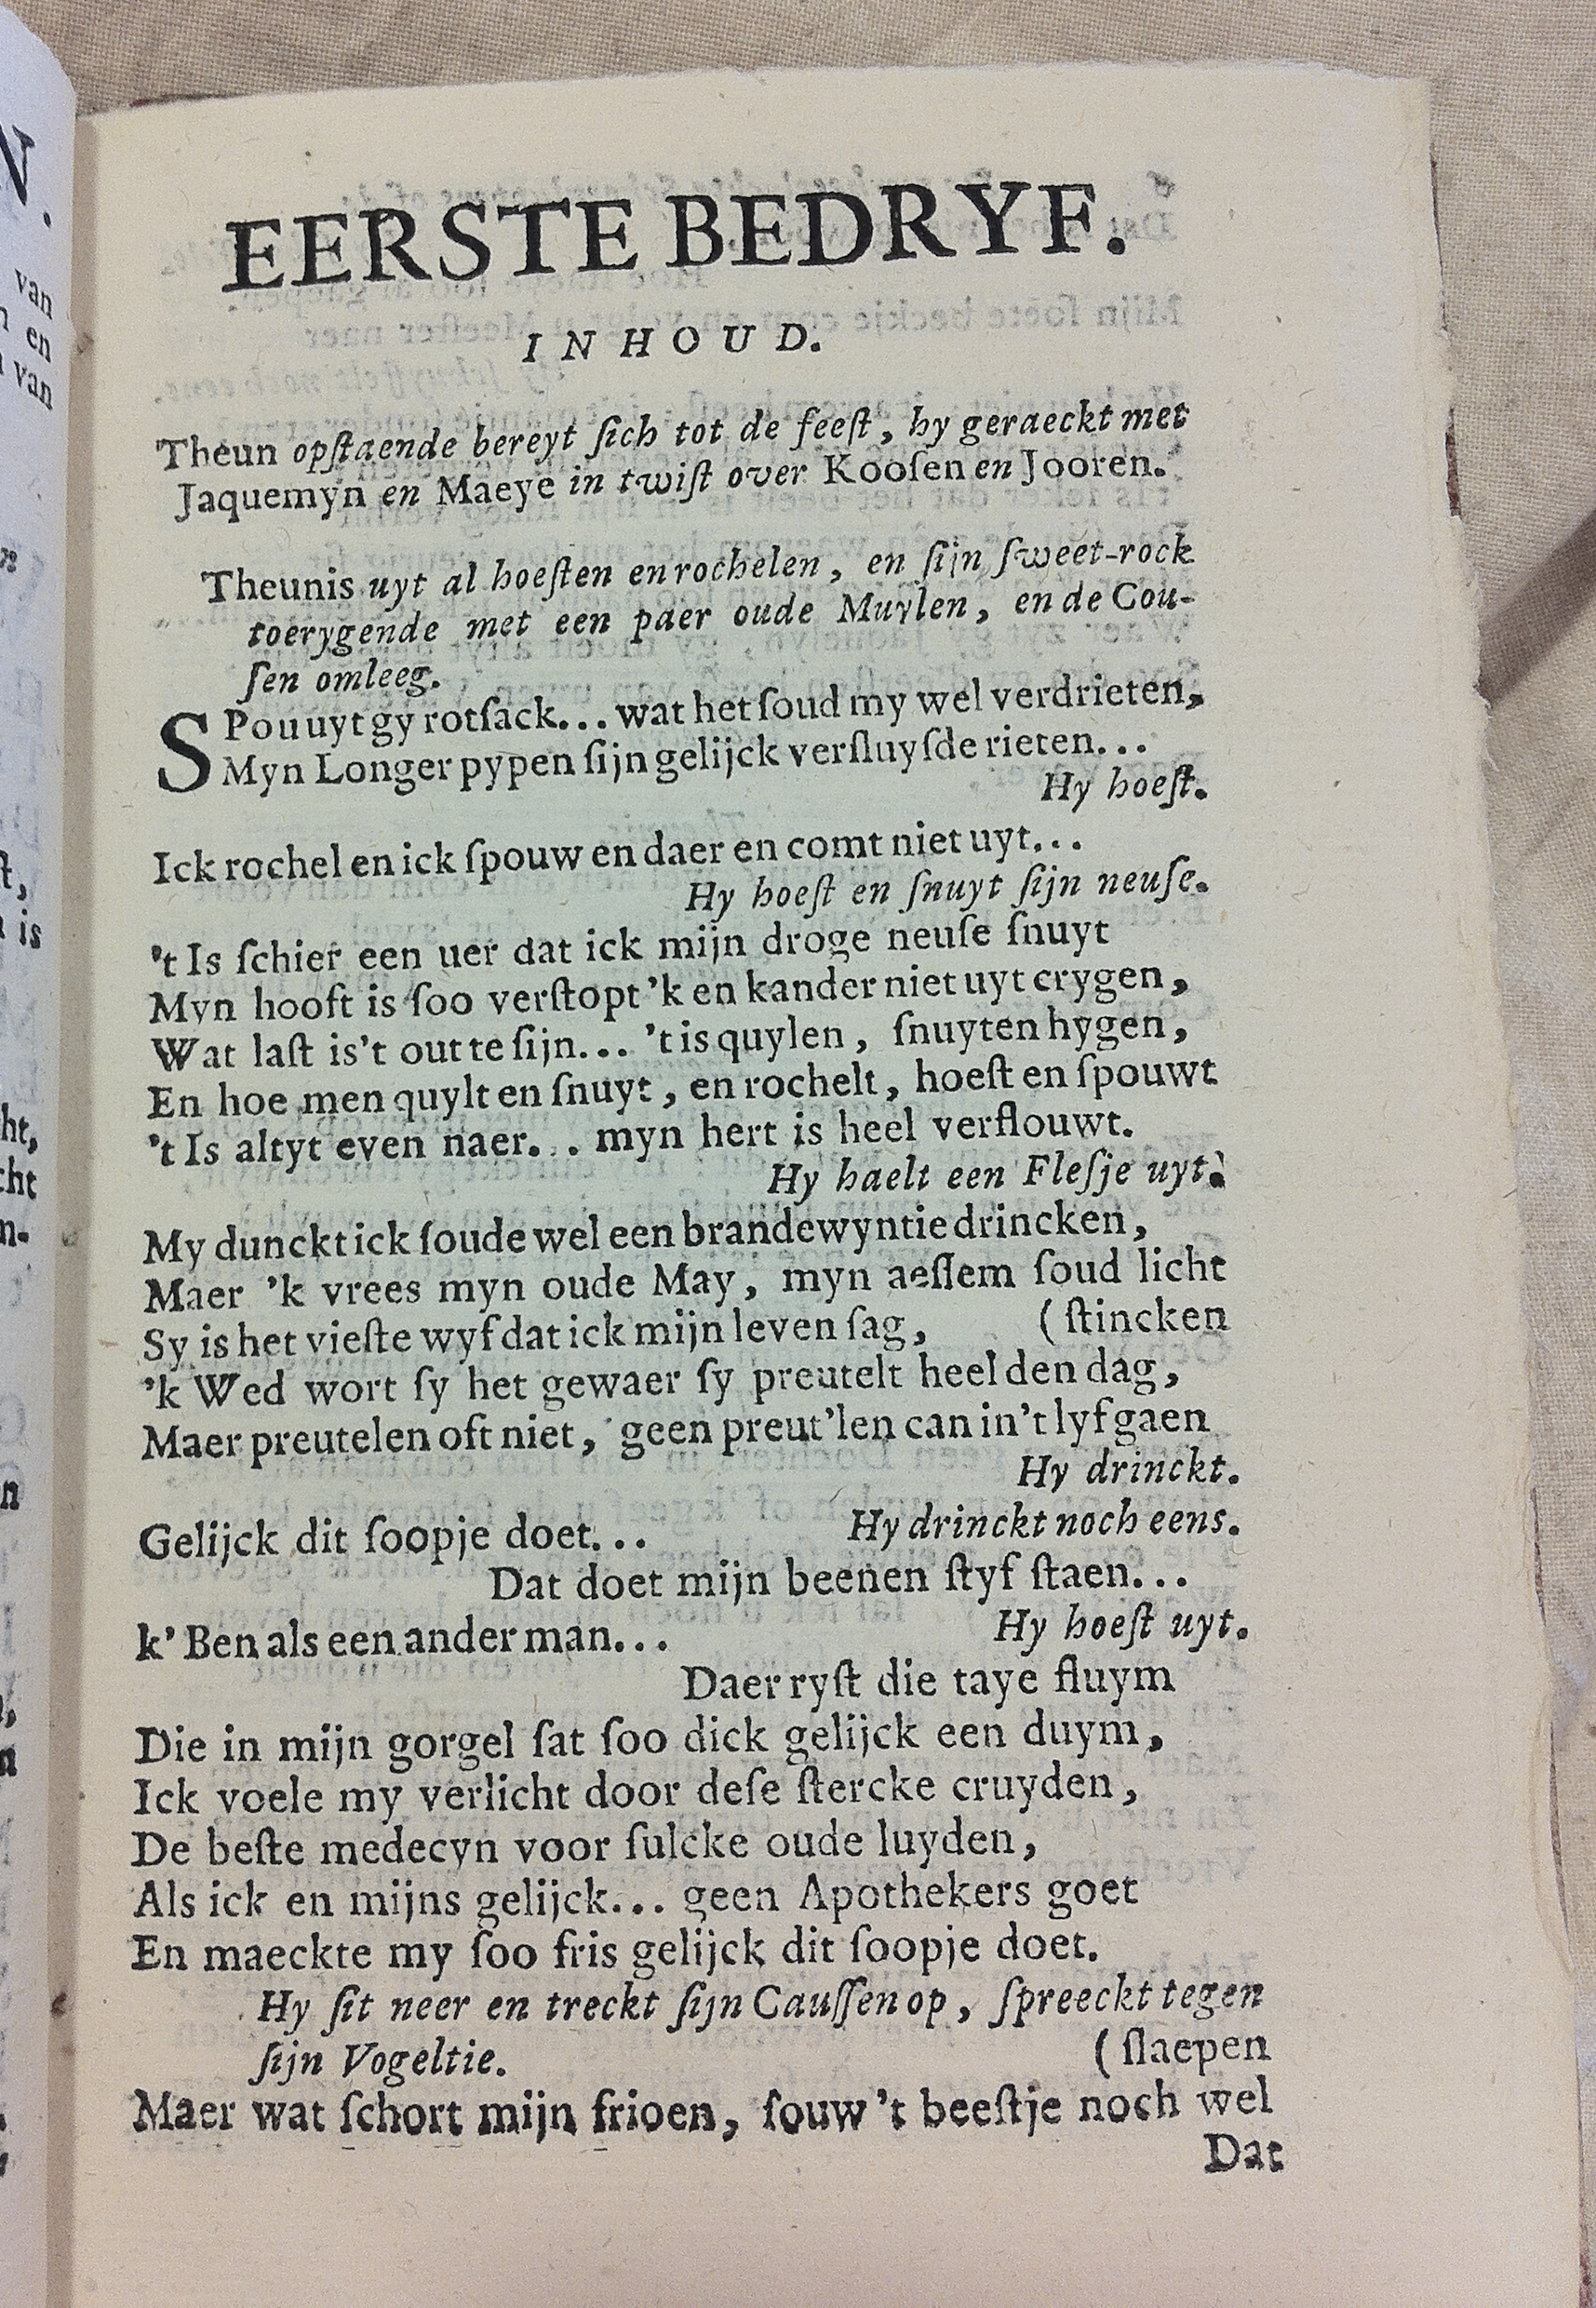 EERSTE BEDRYF.
INHOUD.
Theun opſtaende bereyt ſich tot de feeſt, hy geraeckt met
Jaquemyn en Maeye in twiſt over Kooſen en Jooren.
Theunis uyt al hoeſten en rochelen, en ſijn ſweet-rock
toerygende met een paer oude Muylen, en de Cou-
ſen omleeg.
SPou uyt gy rotſack... wat het ſoud my wel verdrieten,
Myn Longer pypen ſijn gelijck verſluyſde rieten...
Hy hoeſt.
Ick rochel en ick ſpouw en daer en comt niet uyt...
Hy hoeſt en ſnuyt ſijn neuſe.
't Is ſchier een uer dat ick mijn droge neuſe ſnuyt
Myn hooft is ſoo verſtopt 'k en kander niet uyt crygen,
Wat laſt is't out te ſijn... 't is quylen, ſnuyten hygen,
En hoe men quylt en ſnuyt, en rochelt, hoeſt en ſpouwt
't Is altyt even naer... myn hert is heel verflouwt.
Hy haelt een Fleſje uyt.
My dunckt ick ſoude wel een brandewyntie drincken,
Maer 'k vrees myn oude May, myn aeſſem ſoud licht
Sy is het vieſte wyf dat ick mijn leven ſag, (ſtincken
'k Wed wort ſy het gewaer ſy preutelt heel den dag,
Maer preutelen oft niet, geen preut'len can in't lyf gaen
Hy drinckt.
Gelijck dit ſoopje doet... Hy drinckt noch eens.
Dat doet mijn beenen ſtyf ſtaen...
k' Ben als een ander man... Hy hoeſt uyt.
Daer ryſt die taye fluym
Die in mijn gorgel ſat ſoo dick gelijck een duym,
Ick voele my verlicht door deſe ſtercke cruyden,
De beſte medecyn voor ſulcke oude luyden,
Als ick en mijns gelijck... geen Apothekers goet
En maeckte my ſoo fris gelijck dit ſoopje doet.
Hy ſit neer en treckt ſijn Cauſſen op, ſpreeckt tegen
ſijn Vogeltie. (ſlaepen
Maer wat ſchort mijn frioen, ſouw 't beeſtje noch wel
Dat